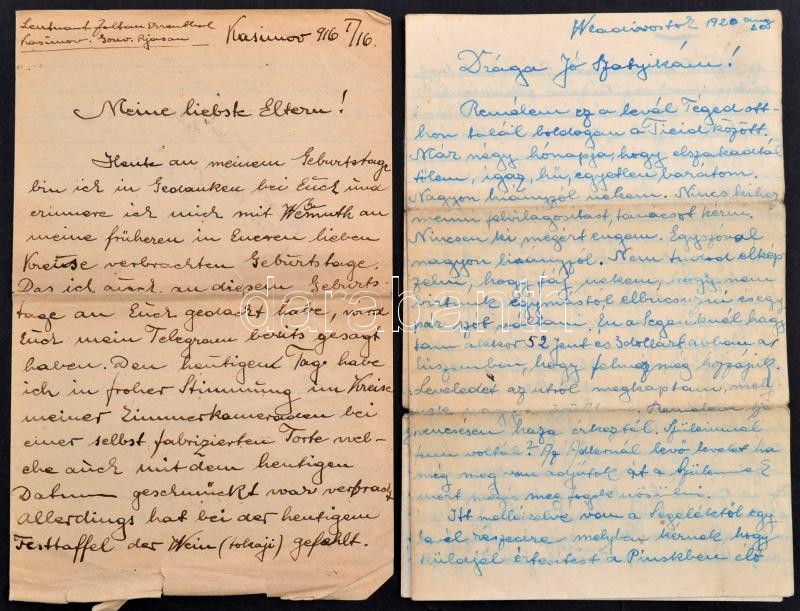 Leutnant Zoltan
Kasimov. Gouv. Rjasan
Kasimov 916 I/16.
Meine liebste Eltern!
Heute an meinem Geburtstage
bin ich in Gedanken bei Euch und
erinnere ich mich mit Wehmuth an
meine früheren in Eueren lieben
Kreise verbrachten Geburtstage.
Das ich auch an diesen Geburts-
tage an Euch gedacht habe, wird
Euch mein Telegram bereits gesagt
haben. Den heutigen Tag habe
ich in froher Stimmung im Kreise
meiner Zimmerkameraden bei
einer selbst fabrizierten Torte wel-
che auch mit dem heutigen
Datum geschmückt war verbracht
allerdings hat bei der heutigen
Festtaffel der Wein (tokaji) gefehlt.
Wladivostok 1920 aug
Drága Jó Szatyikám!
Remélem ez a levél Téged ott-
hon talál boldogan a Tieid között.
Már négy hónapja, hogy elszakadtál
tőlem, igaz, hű, egyetlen barátom.
Nagyon hiányzol nekem. Nincs kihez
menni felvilágosítást, tanácsot kérni.
Nincsen ki megért engem. Egyszóval
nagyon hiányzol. Nem tudod elkép-
zelni, hogy fáj nekem, hogy nem
birtunk egymástól elbúcsúzni és egy
pár szót váltani. Én a
tam akkor 52 Jent és 3 dollárt abban a
hiszemben, hogy felmész még hozzájuk.
Leveledet az útról megkaptam, mely
Remélem
rencsésen haza érkeztél. Szüleimnél
voltál? Az Adlernál levő levelet ha
még meg van adjátok át a Szüleimnek
mert mégis meg fogok nősülni.
Itt mellékelve van a Segeléktől egy
levél részedre melyben kérnek, hogy
küldjél értesítést a Pinskben élő
darabanth